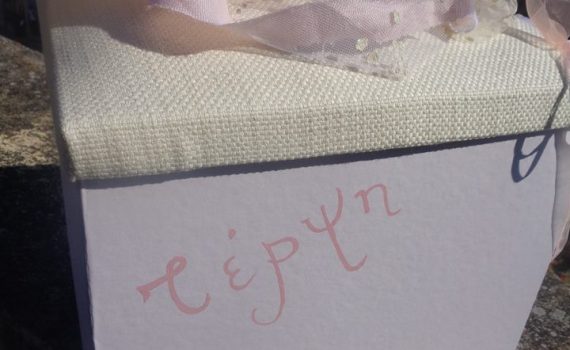 τέρψη